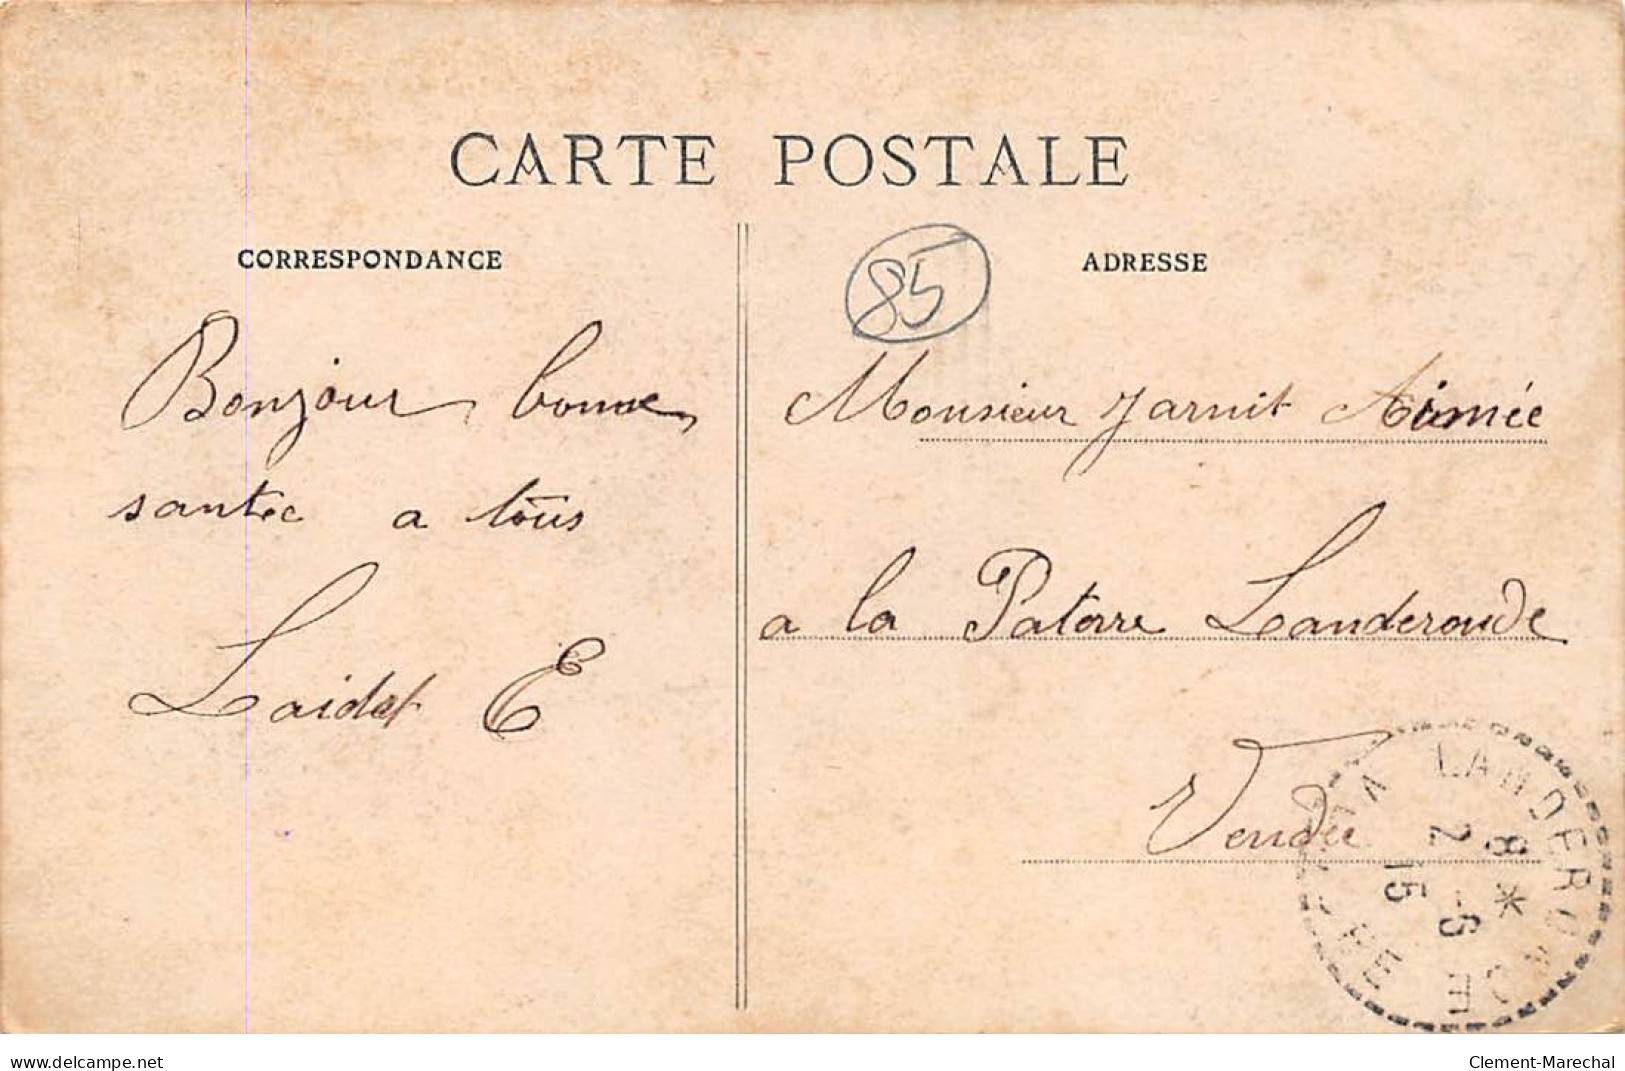 CARTE POSTALE
CORRESPONDANCE
ADRESSE
85
Bonjour bonne
santée a tous
Laidet E
Monsieur Jarnit Aimée
a la Patorre Landeroude
Vendée
LANDERONDE
VENDEE
8 *
2 -6
15
www.delcampe.net
Clement-Marechal